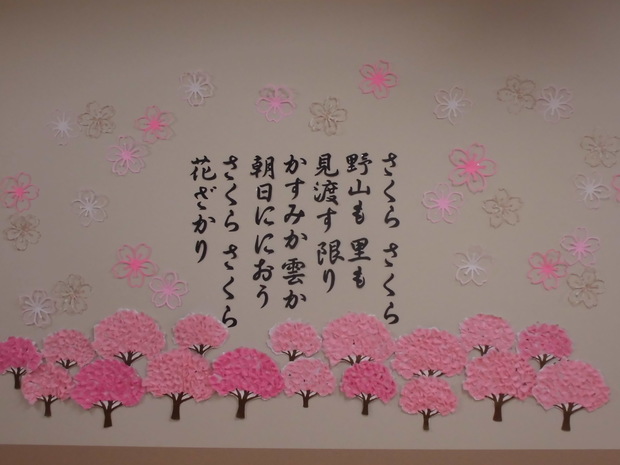 さくら さくら
野山も 里も
見渡す 限り
かすみか 雲か
朝日ににおう
さくら さくら
花ざかり